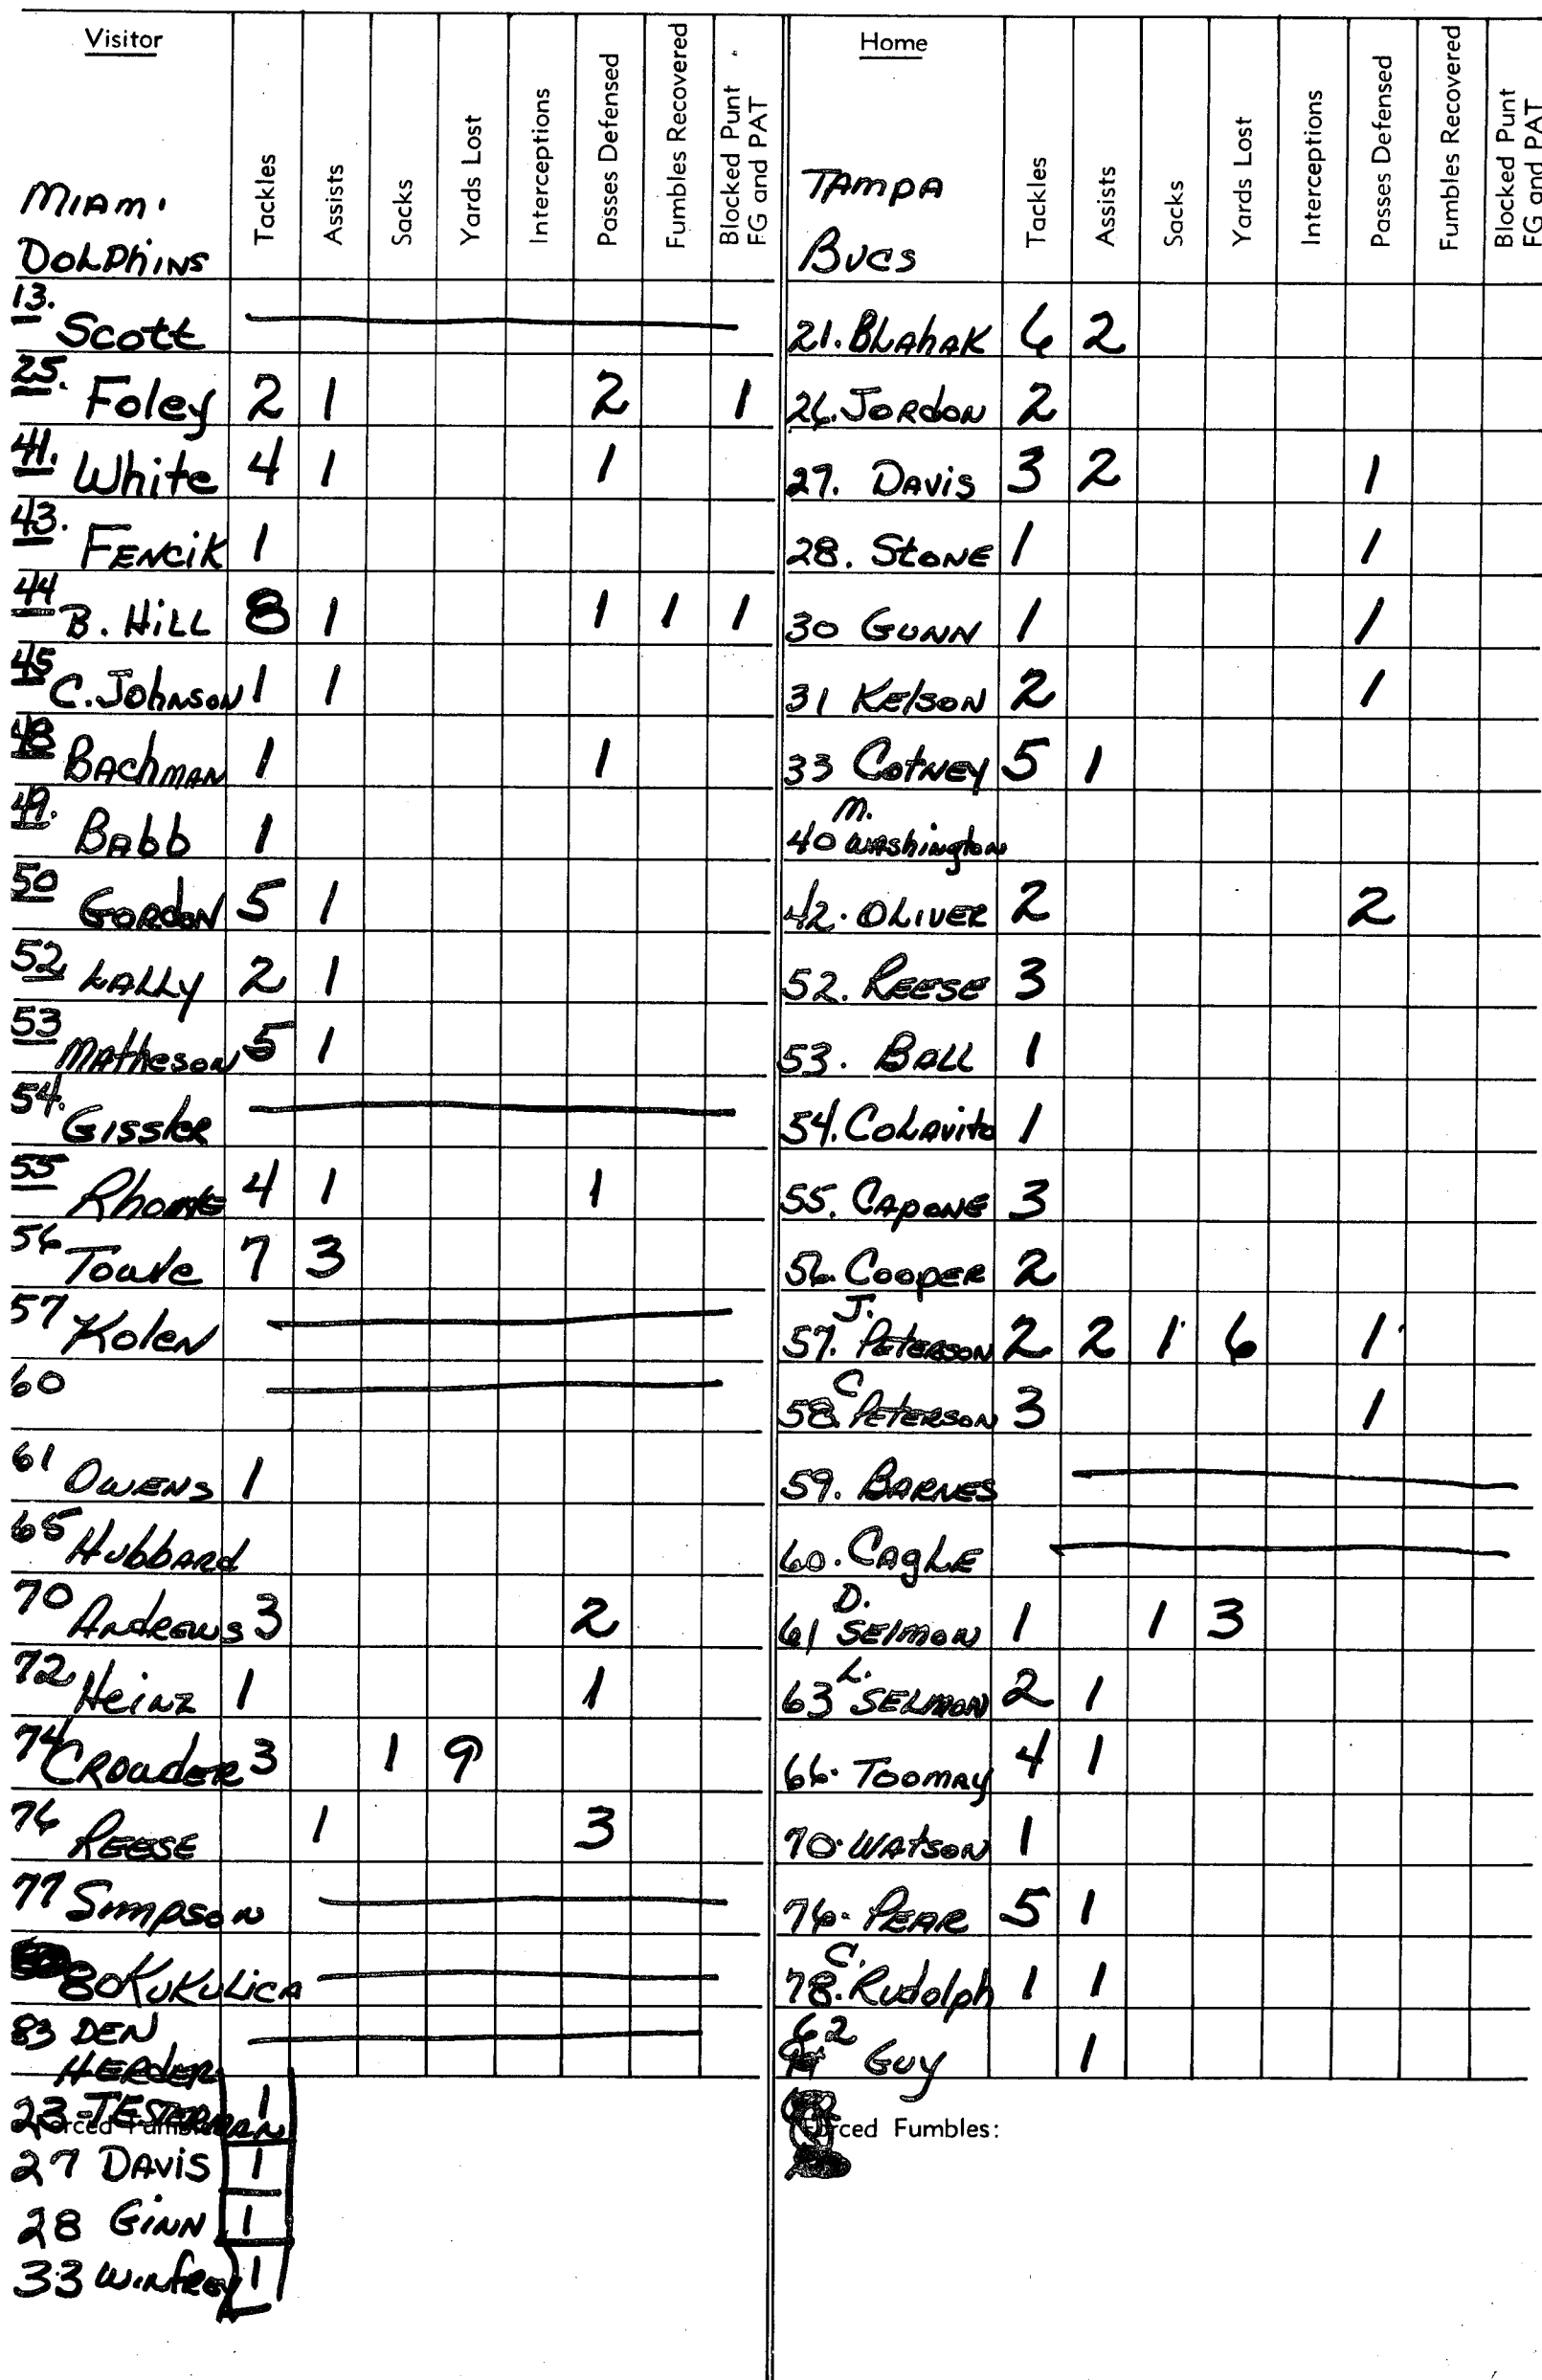 Visitor
Tackles
Assists
Sacks
Yards Lost
Interceptions
Passes Defensed
Fumbles Recovered
Blocked Punt
FG and PAT
MIAMI
DOLPHINS
13. Scott
25. Foley 2 1 2 1
41. White 4 1 1
43. FENCIK 1
44 B. HILL 8 1 1 1 1
45 C. JOHNSON 1 1
48 BACHMAN 1 1
49. BABB 1
50 GORDON 5 1
52 LALLY 2 1
53 Matheson 5 1
54. Gissler
55 Rhone 4 1 1
56 Towle 7 3
57 Kolen
60
61 OWENS 1
65 Hubbard
70 Andrews 3 2
72 Heinz 1 1
74 CROWDER 3 1 9
76 REESE 1 3
77 Simpson
80 KUKULICA
83 DEN
HERDER
23 TESTERMAN 1
27 DAVIS 1
28 GINN 1
33 WINfREY 1
Home
Tackles
Assists
Sacks
Yards Lost
Interceptions
Passes Defensed
Fumbles Recovered
Blocked Punt
FG and PAT
TAMPA
BUCS
21. BLAHAK 6 2
26. JORDON 2
27. DAVIS 3 2 1
28. STONE 1 1
30 GUNN 1 1
31 KELSON 2 1
33 COTNEY 5 1
40 M. WAShington
42. OLIVER 2 2
52. REESE 3
53. BALL 1
54. COLAVITO 1
55. CAPONE 3
56. COOPER 2
57. J. PETERSON 2 2 1 6 1
58. C PETERSON 3 1
59. BARNES
60. CAGLE
61 D. SELMON 1 1 3
63 L. SELMON 2 1
66. TOOMAY 4 1
70. WATSON 1
76. PEAR 5 1
78. C. Rudolph 1 1
62 GUY 1
Forced Fumbles: